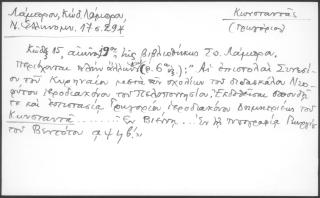 Λάμπρου, Κώδ. Λάμπρου,
Ν. Ἑλληνομν. 17 σ. 29
Κωνσταντᾶς
(Γρηγόριος)
Κώδιξ 15, αἰῶνος 19ου τῆς βιβλιοθήκης Σπ. Λάμπρου,
περιέχονται πλὴν ἄλλων (σ. 6): "Αἱ ἐπιστολαὶ Συνεσί-
ου τοῦ Κυρηναίου μετὰ τῶν σχολίων τοῦ διδασκάλου Νεο-
φύτου ἱεροδιακόνου τοῦ Πελοποννησίου. Ἐκδοθεῖσαι σπουδῇ
τε καὶ ἐπιστασίᾳ Γρηγορίου ἱεροδιακόνου Δημητριέως τοῦ
Κωνσταντᾶ ........ Ἐν Βιέννῃ .. Ἐν τῇ τυπογραφίᾳ Γεωργίου
τοῦ Βενδότου αψϟβ΄